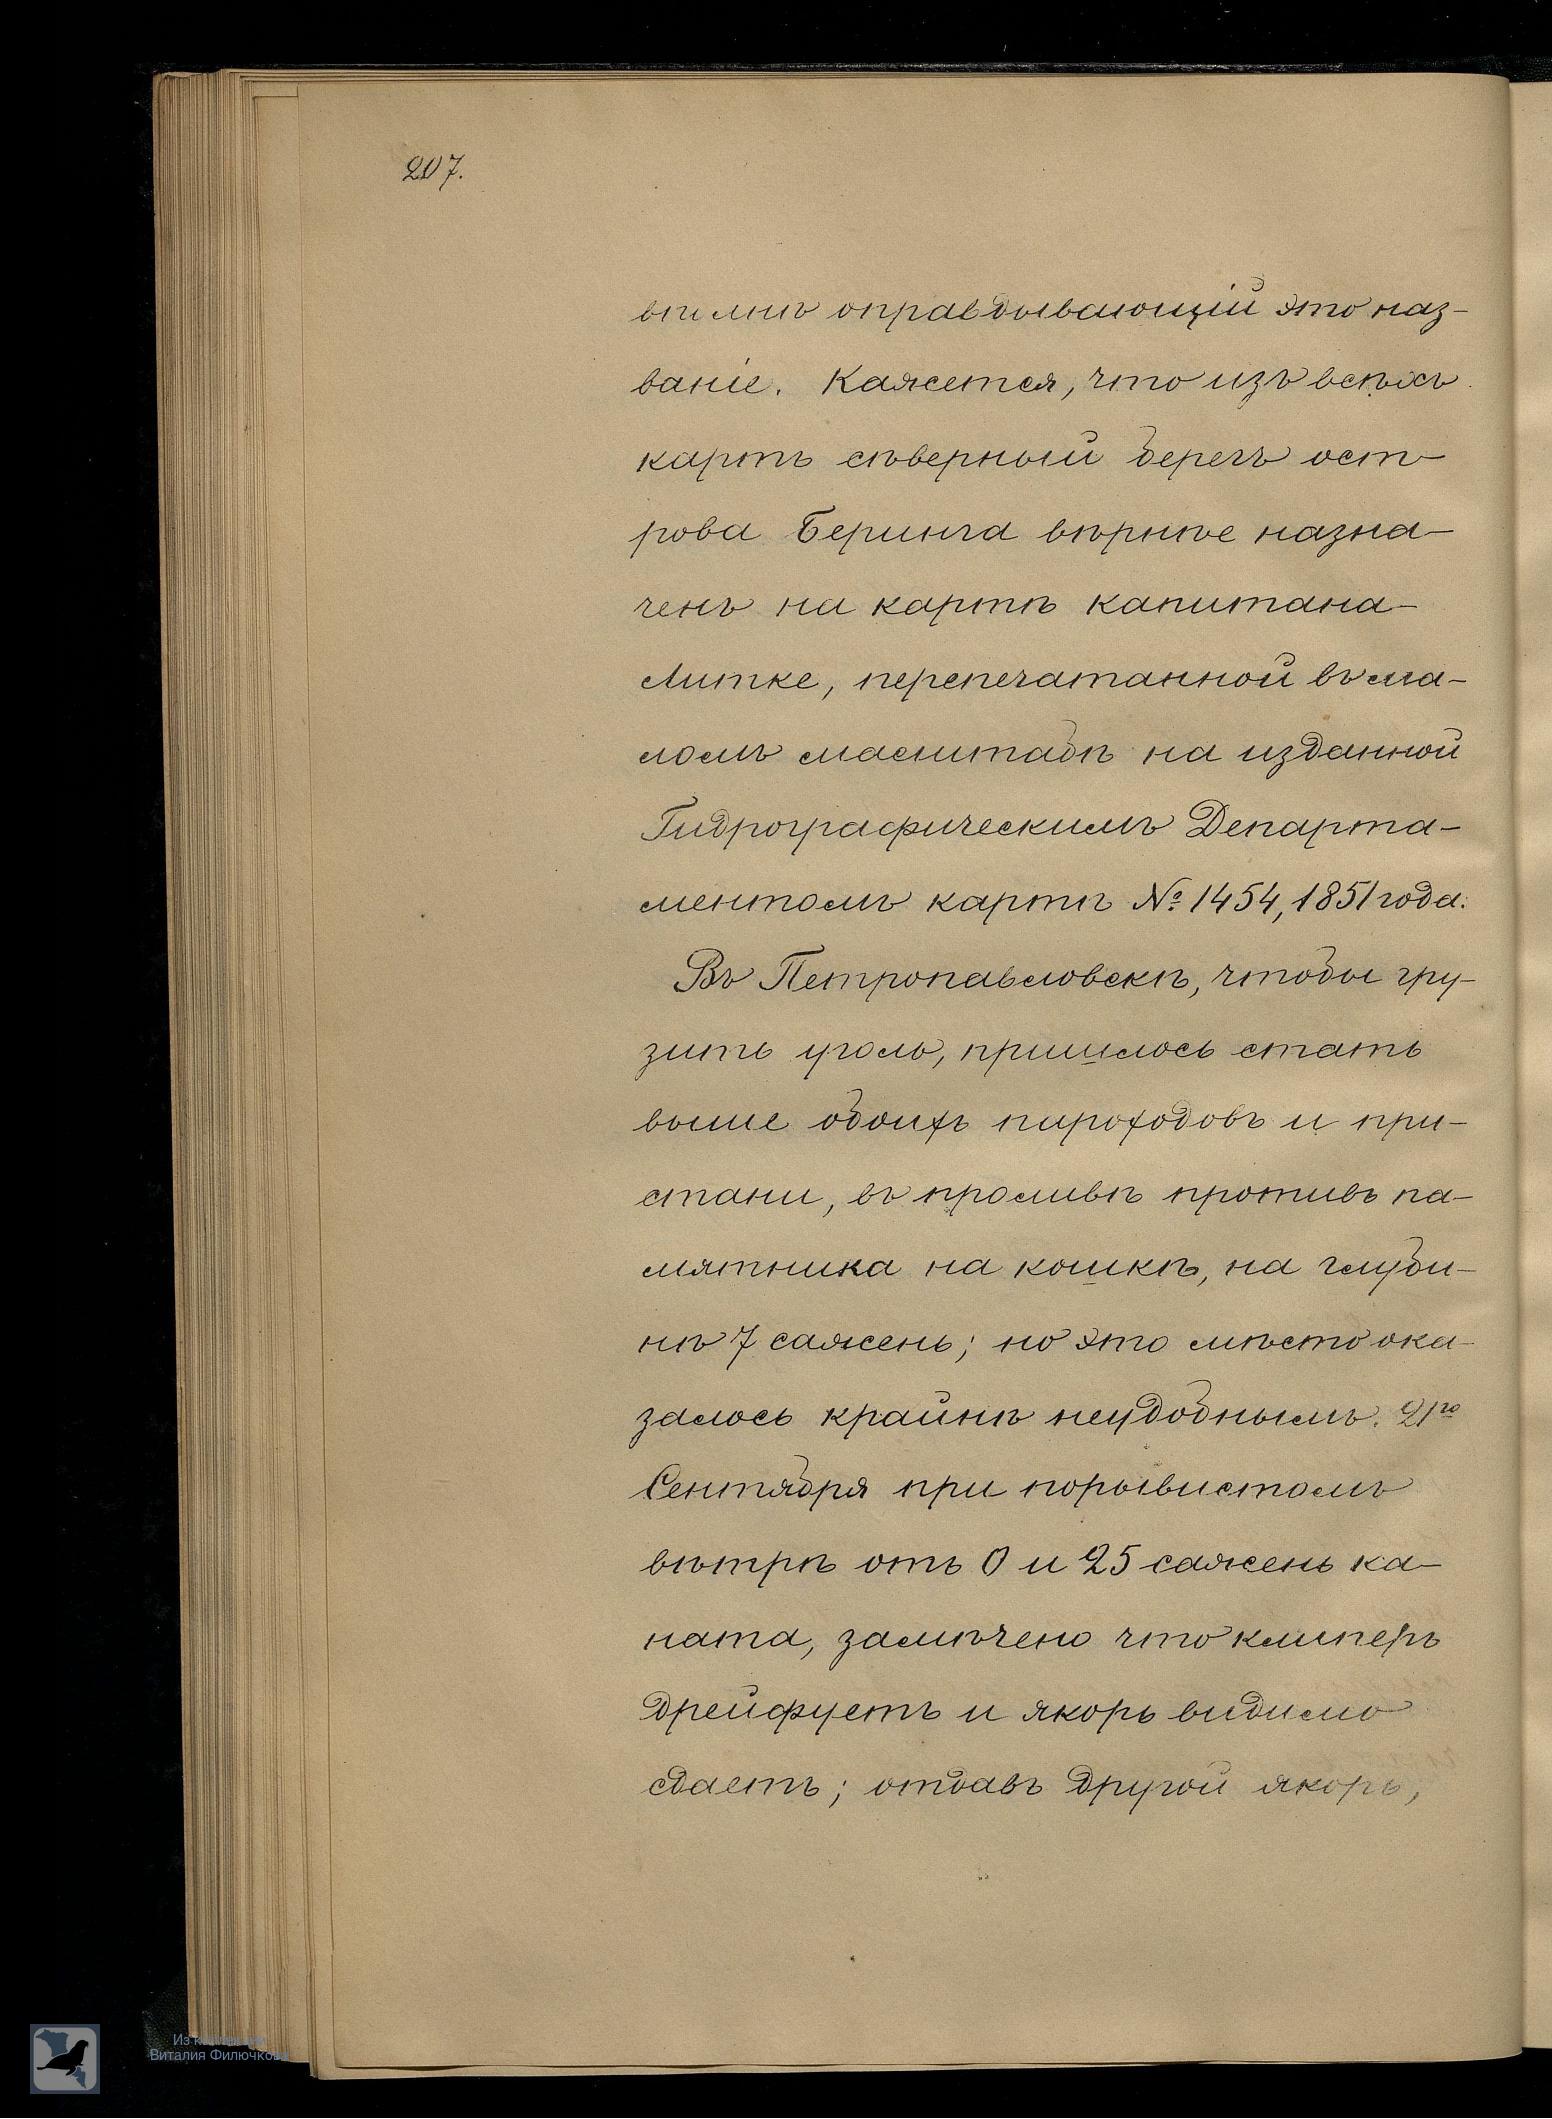 207.
вполнѣ оправдывающій это наз-
ваніе. Кажется, что изъ всѣхъ
картъ сѣверный берегъ ост-
рова Беринга вѣрнѣе назна-
ченъ на картѣ капитана
Литке, перепечатанной въ ма-
ломъ масштабѣ на изданной
Гидрографическимъ Департа-
ментомъ картѣ № 1454, 1851 года.
Въ Петропавловскѣ, чтобы гру-
зить уголь, пришлось стать
выше обоихъ пароходовъ и при-
стани, въ проливѣ противъ па-
мятника на кошкѣ, на глуби-
нѣ 7 сажень; но это мѣсто ока-
залось крайнѣ неудобнымъ. 21го
Сентября при порывистомъ
вѣтрѣ отъ O и 25 сажень ка-
ната, замѣчено что клиперъ
дрейфуетъ и якорь видимо
сдаетъ; отдавъ другой якорь,
Виталия Филючкова